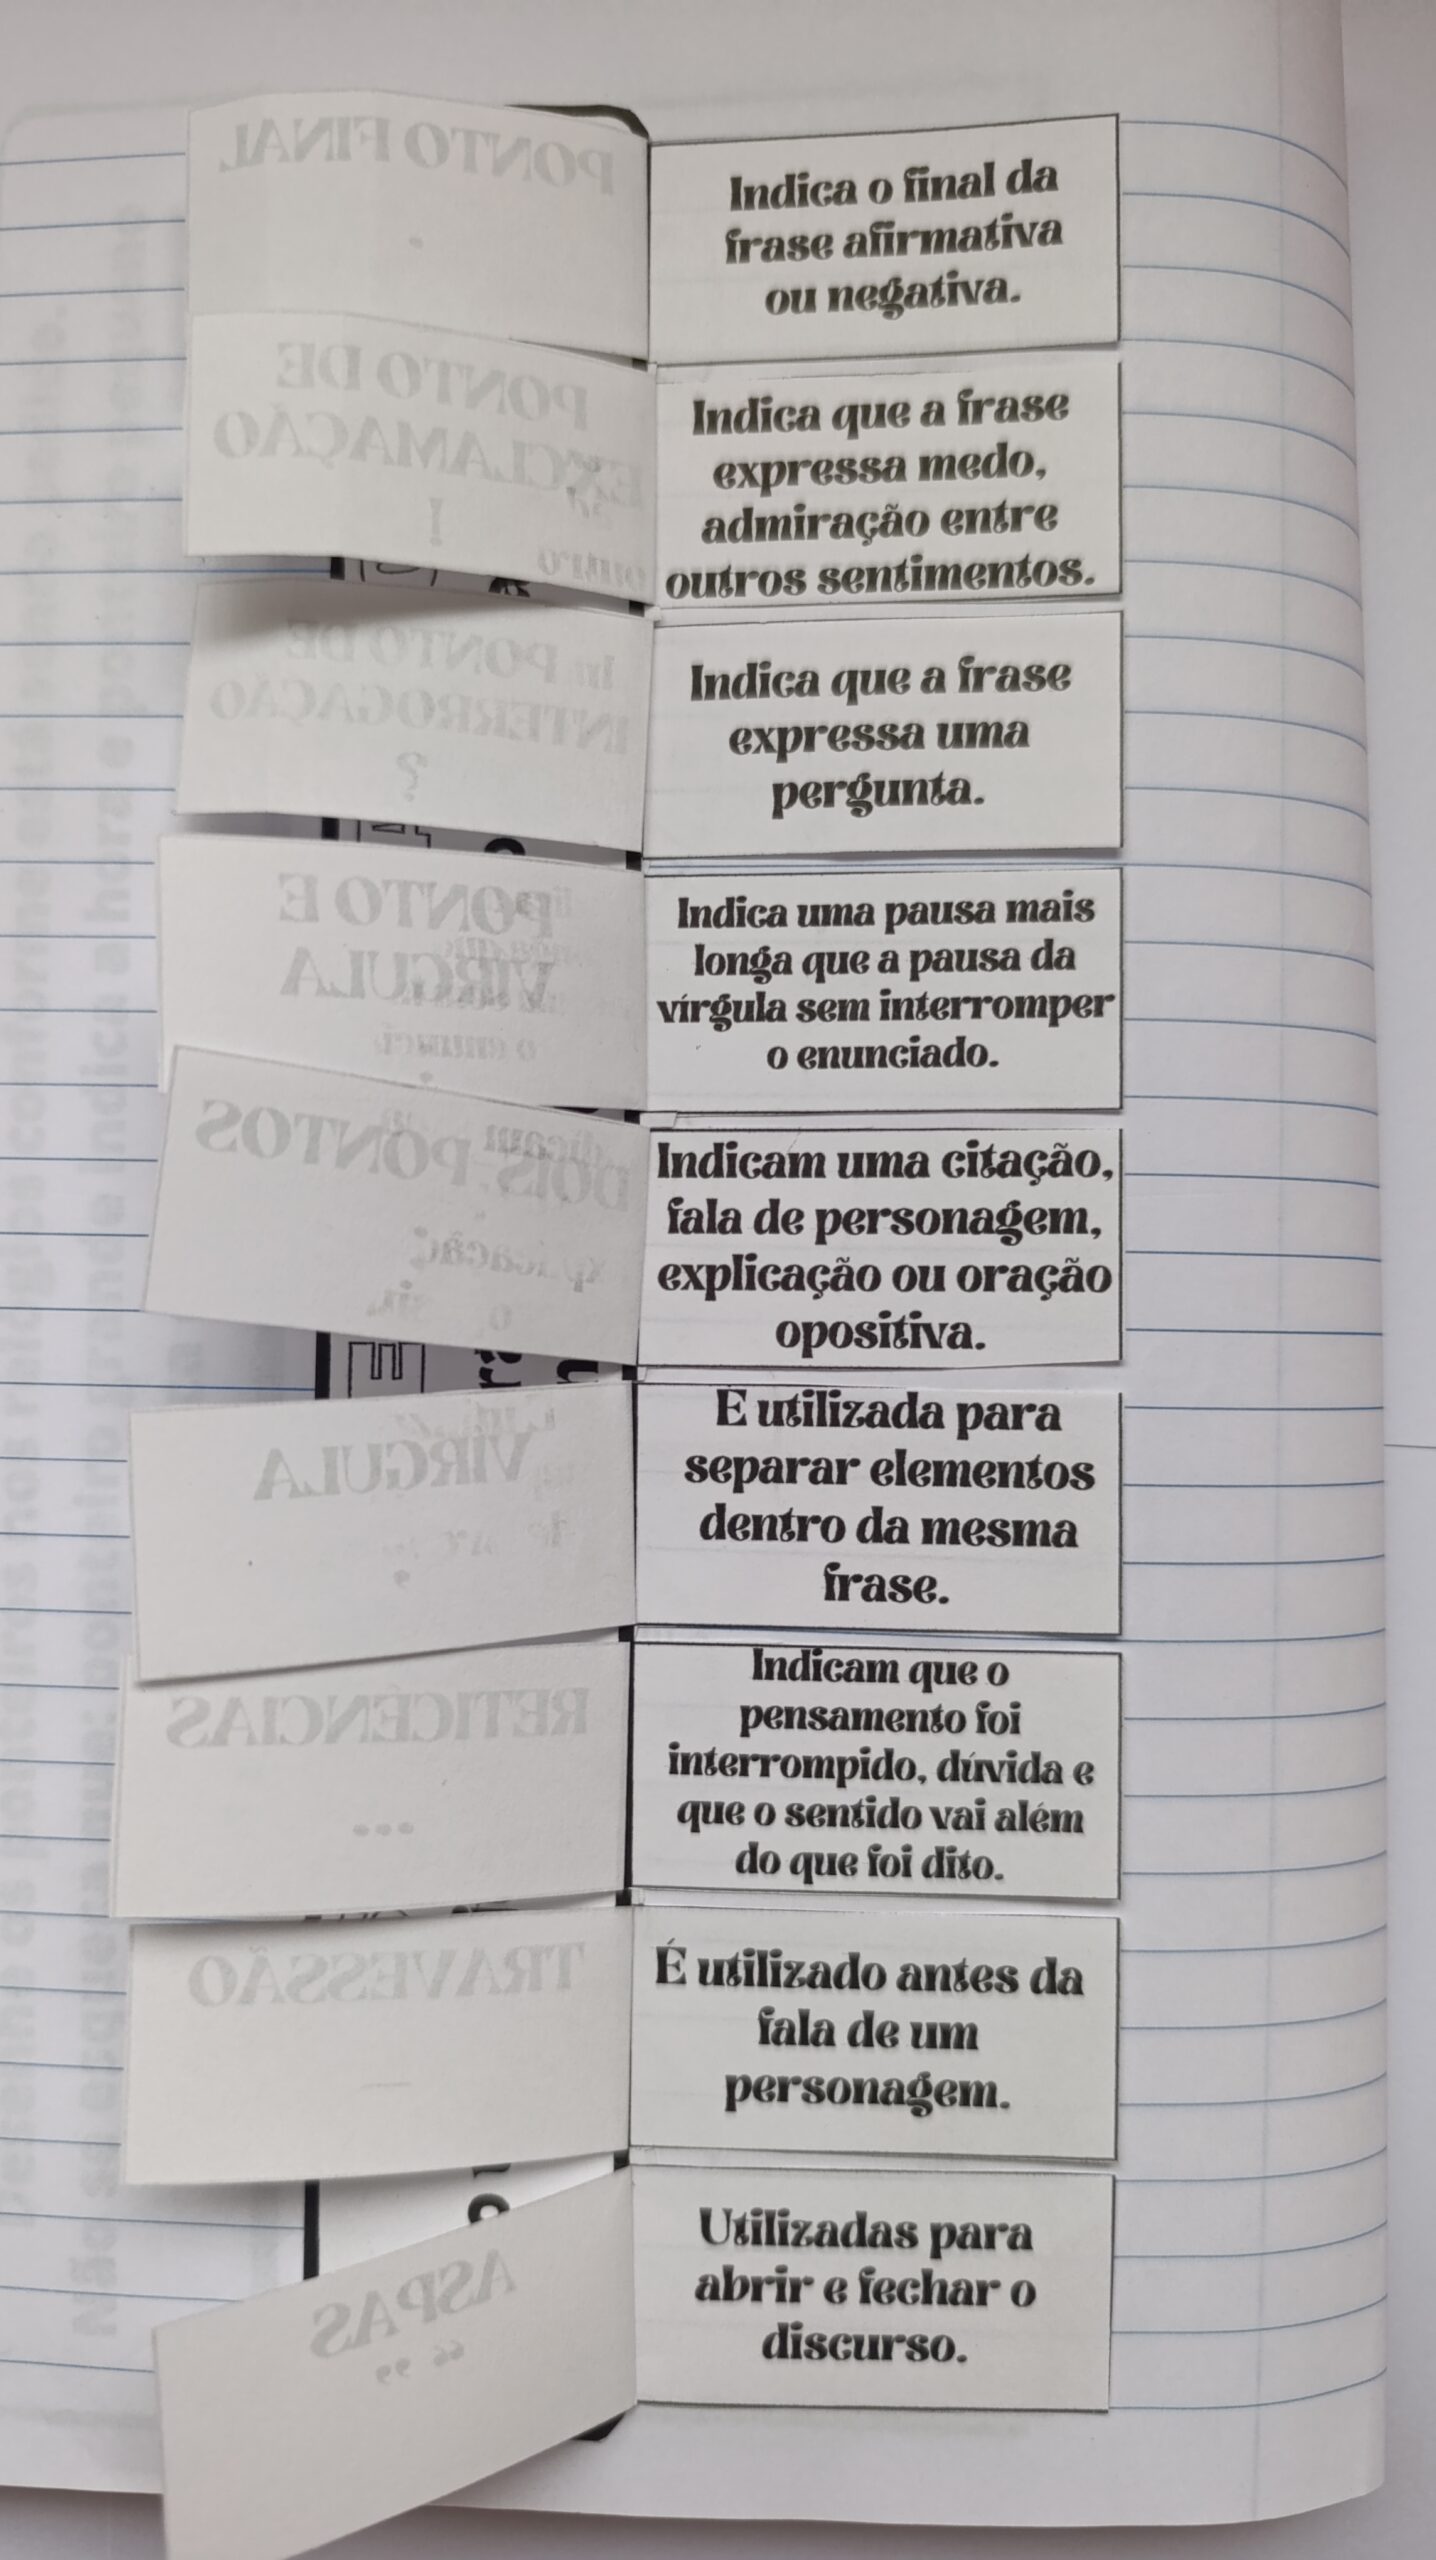 PONTO FINAL
.
Indica o final da
frase afirmativa
ou negativa.
PONTO DE
EXCLAMAÇÃO
!
Indica que a frase
expressa medo,
admiração entre
outros sentimentos.
PONTO DE
INTERROGAÇÃO
?
Indica que a frase
expressa uma
pergunta.
PONTO E
VÍRGULA
Indica uma pausa mais
longa que a pausa da
vírgula sem interromper
o enunciado.
DOIS PONTOS
Indicam uma citação,
fala de personagem,
explicação ou oração
opositiva.
VÍRGULA
,
É utilizada para
separar elementos
dentro da mesma
frase.
RETICÊNCIAS
...
Indicam que o
pensamento foi
interrompido, dúvida e
que o sentido vai além
do que foi dito.
TRAVESSÃO
—
É utilizado antes da
fala de um
personagem.
ASPAS
“ ”
Utilizadas para
abrir e fechar o
discurso.